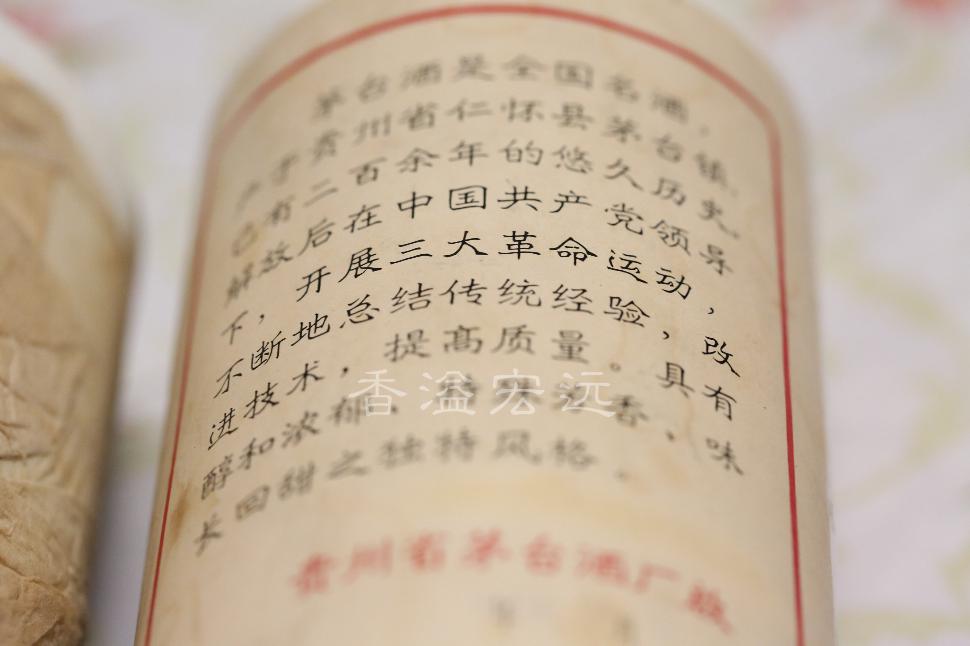 茅台酒是全国名酒，
产于贵州省仁怀县茅台镇，
已有二百余年的悠久历史。
解放后在中国共产党领导
下，开展三大革命运动，
不断地总结传统经验，改
进技术，提高质量。具有
醇和浓郁、特殊芳香，味
长回甜之独特风格。
贵州省茅台酒厂
香溢宏远